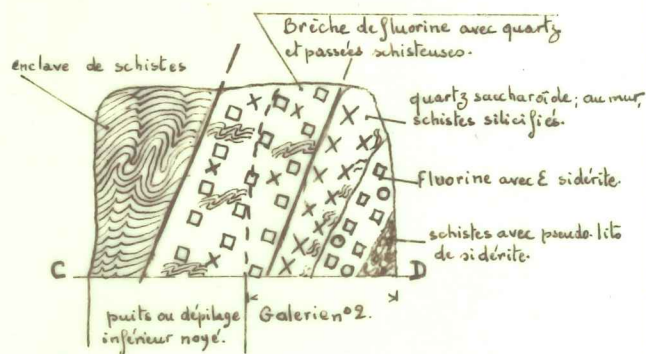 Brèche de fluorine avec quartz
et passées schisteuses.
enclave de schistes
quartz saccharoïde; au mur,
schistes silicifiés.
Fluorine avec ℇ sidérite.
schistes avec pseudo-lits
de sidérite.
C
D
puits ou dépilage
inférieur noyé.
Galerie n°2.